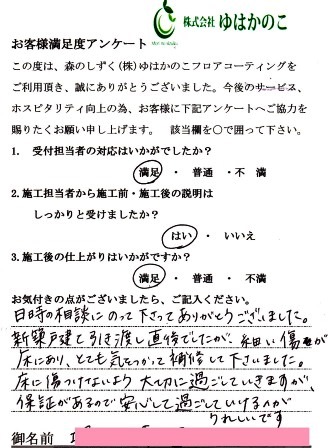 株式会社 ゆはかのこ
お客様満足度アンケート
この度は、森のしずく(株)ゆはかのこフロアコーティングを
ご利用頂き、誠にありがとうございました。今後のサービス、
ホスピタリティ向上の為、お客様に下記アンケートへご協力を
賜りたくお願い申し上げます。 該当欄を○で囲って下さい。
1. 受付担当者の対応はいかがでしたか?
満足 ・ 普通 ・不 満
2.施工担当者から施工前・施工後の説明は
しっかりと受けましたか?
はい ・ いいえ
3.施工後の仕上がりはいかがですか?
満足 ・ 普通 ・ 不 満
お気付きの点がございましたら、ご記入ください。
日時の相談にのって下さってありがとうございました。
新築戸建て引き渡し直後でしたが、細い傷が
床にあり、とても気をつかって補修して下さいました。
床に傷つけないよう大切に過ごしていきますが、
保証があるので安心して過ごしていけるのが
うれしいです
御名前